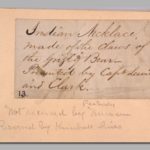 Indian Necklace,
made of the Claws of
the Grizly Bear.
Presented by Capt. Lewis
and Clark.
13
Peabody
Not received by Museum
Received by Kimball